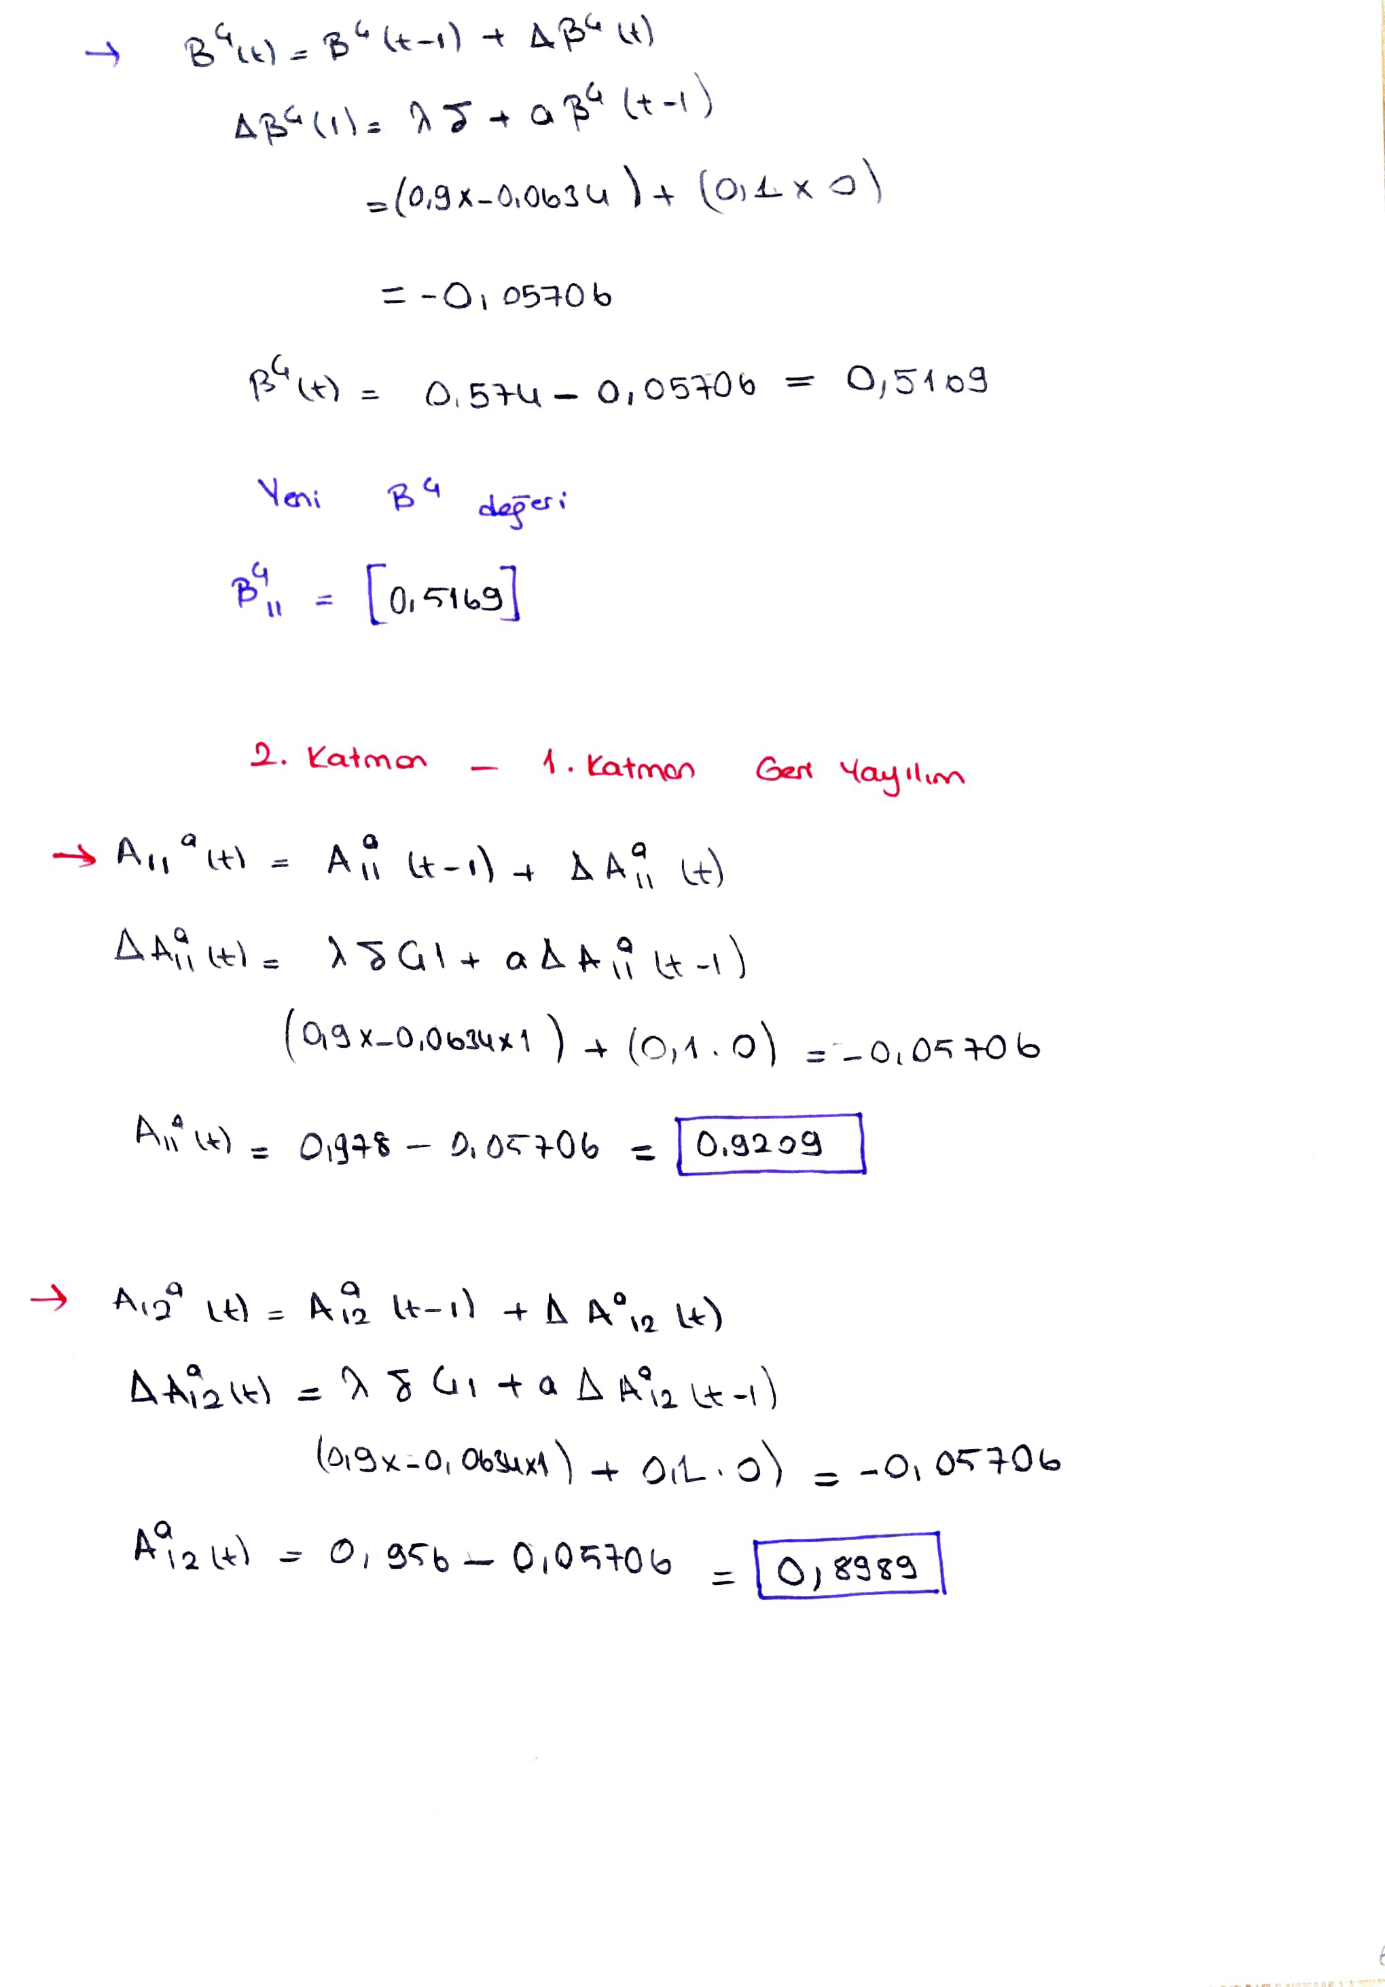 → β⁴(t) = β⁴(t-1) + Δβ⁴(t)
Δβ⁴(1) = λδ + aβ⁴(t-1)
= (0,9x-0,0634) + (0,1 x 0)
= -0,05706
β⁴(t) = 0,574 - 0,05706 = 0,5169
Yeni β⁴ değeri
β⁴₁₁ = [0,5169]
2. Katman - 1. Katman Geri Yayılım
→ A₁₁ᵃ(t) = A₁₁ᵃ(t-1) + ΔA₁₁ᵃ(t)
ΔA₁₁ᵃ(t) = λδG1 + aΔA₁₁ᵃ(t-1)
(0,9x-0,0634x1) + (0,1.0) = -0,05706
A₁₁ᵃ(t) = 0,978 - 0,05706 = 0,9209
→ A₁₂ᵃ(t) = A₁₂ᵃ(t-1) + ΔA₁₂ᵃ(t)
ΔA₁₂ᵃ(t) = λδG1 + aΔA₁₂ᵃ(t-1)
(0,9x-0,0634x1) + 0,1.0) = -0,05706
A₁₂ᵃ(t) = 0,956 - 0,05706 = 0,8989